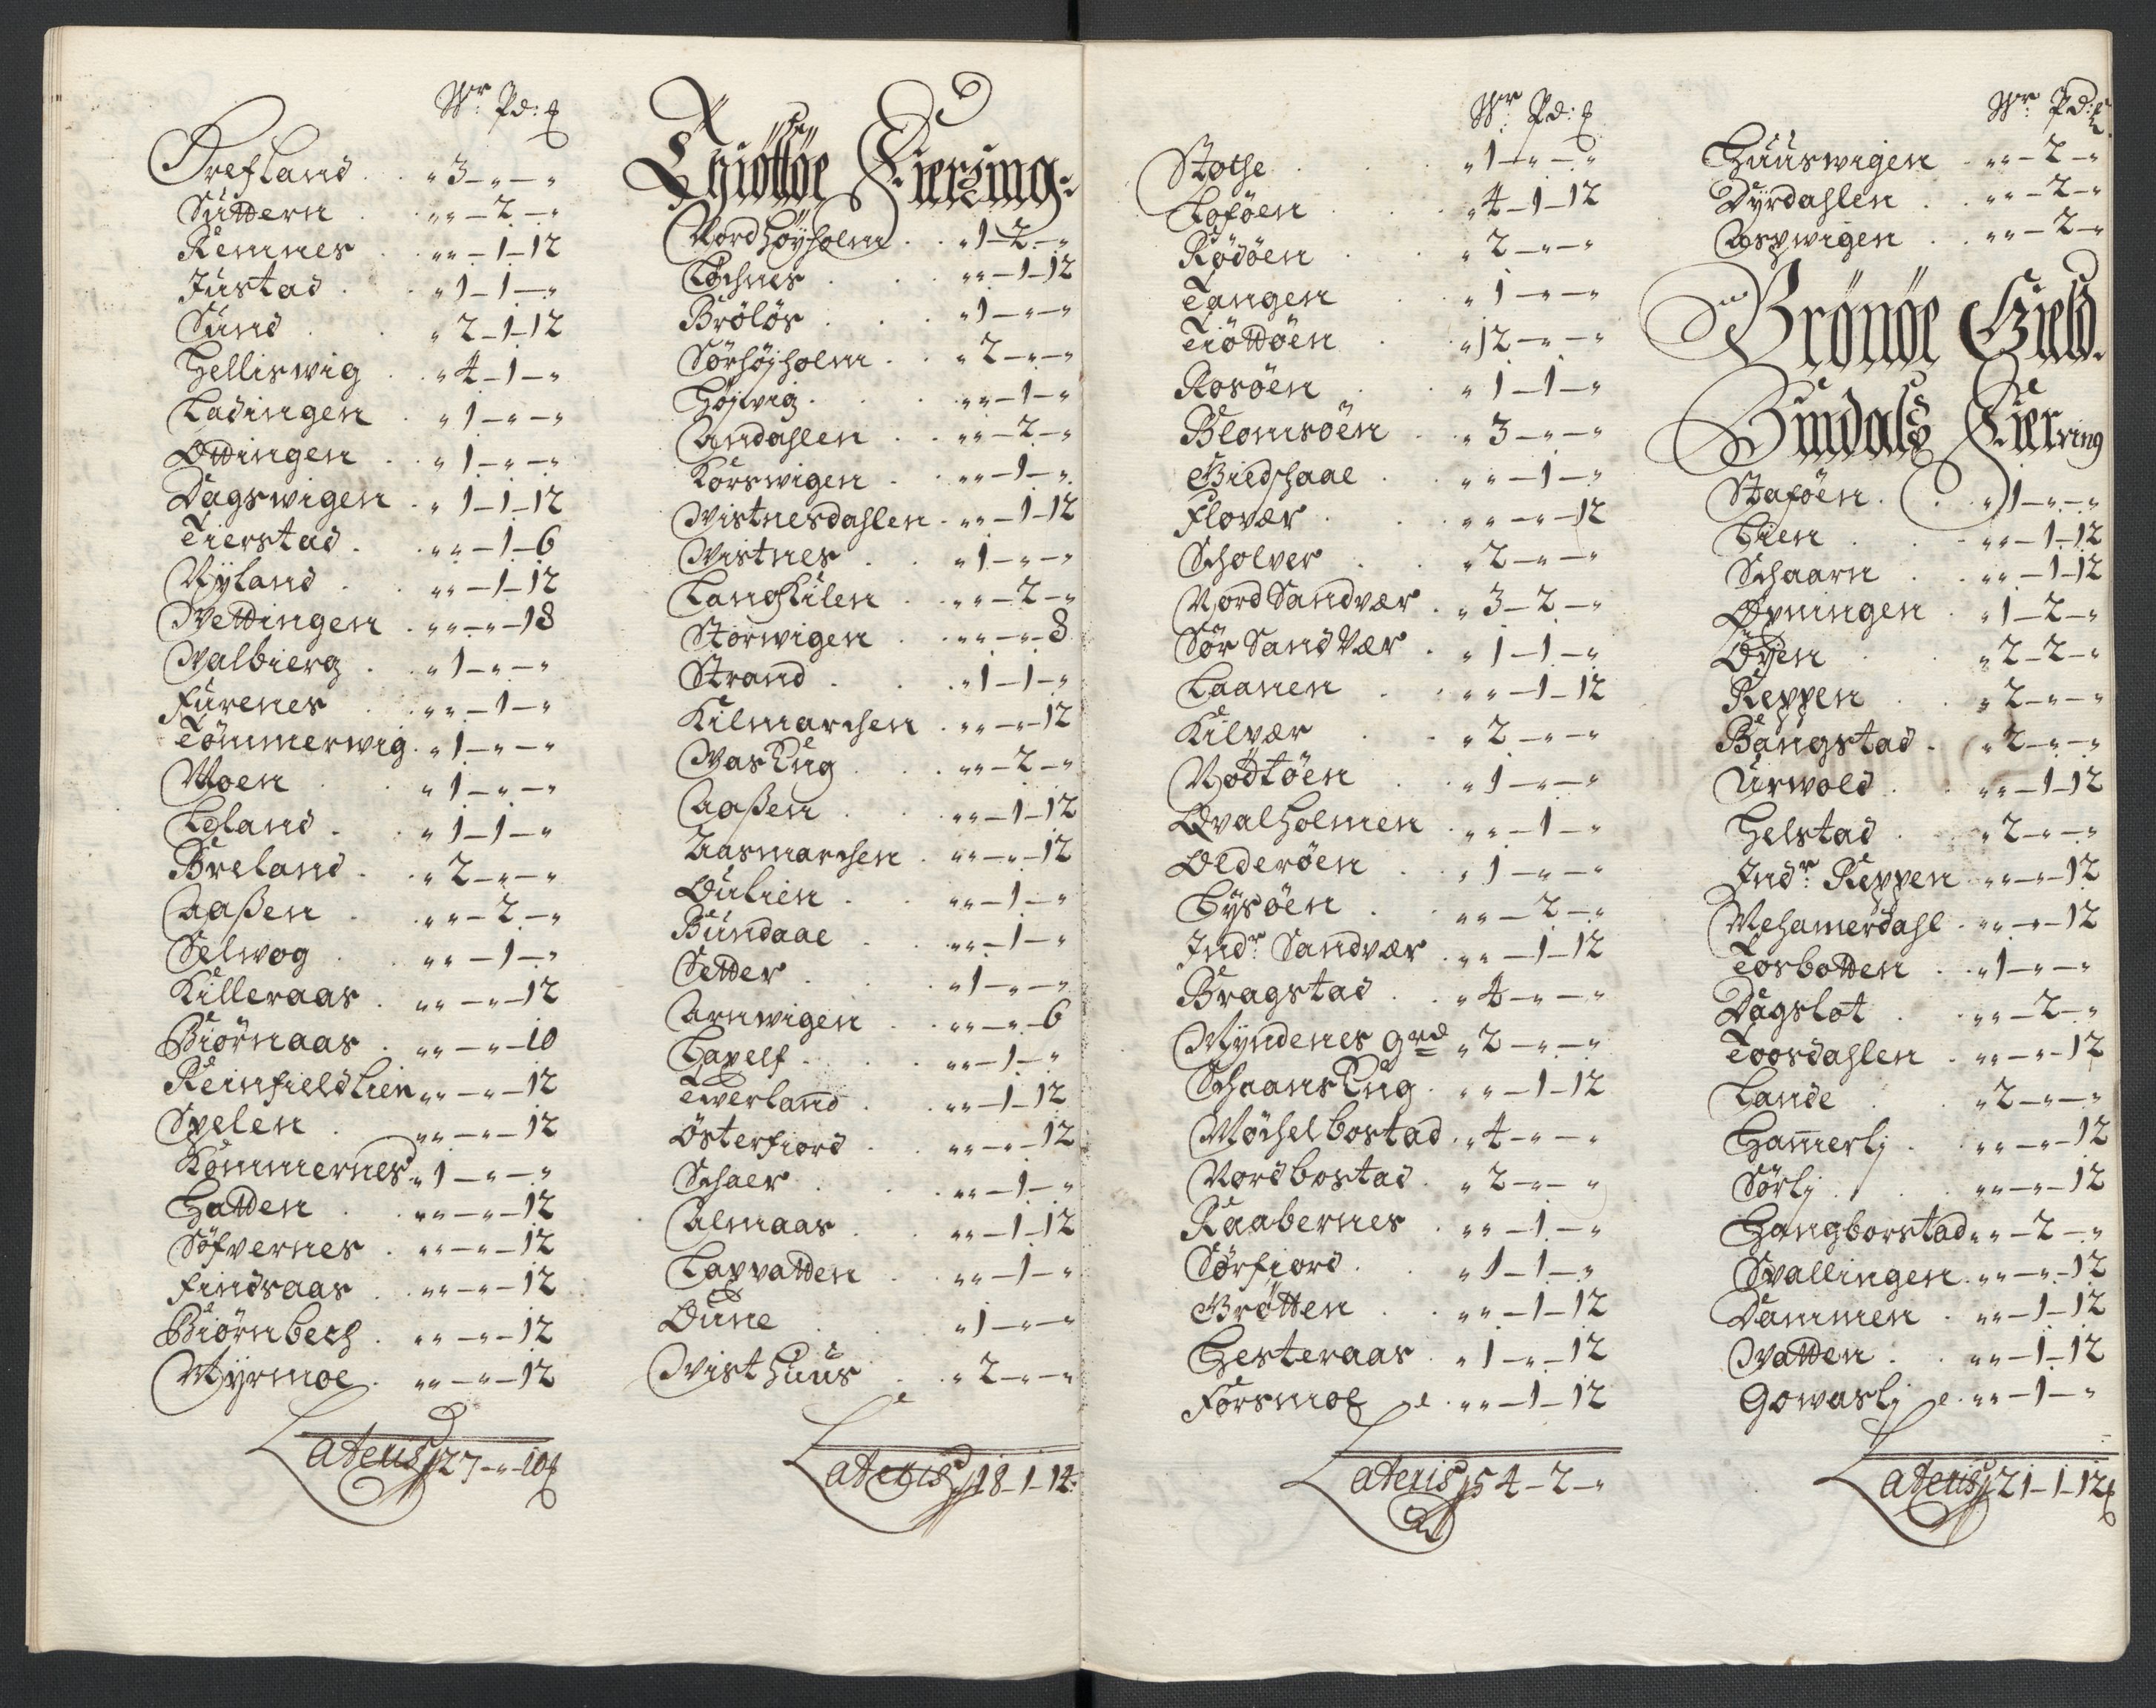 Wr Pd: ℔
Drefland . . „ 3 – „ – „
Suttern . . „ „ – 2 – „
Remnes . . „ „ – 1 – 12
Justad . . „ 1 – 1 – „
Sund . . „ 2 – 1 – 12
Helliswig . „ 4 – 1 – „
Ladingen . „ 1 – „ – „
Ottingen . „ 1 – „ – „
Dagswigen . „ 1 – 1 – 12
Tierstad . „ „ – 1 – 6
Nyland . „ „ – 1 – 12
Wettingen . „ „ – „ – 18
Walbierg . „ 1 – „ – „
Furenes . „ „ – 1 – „
Tömmerwig . „ 1 – „ – „
Moen . „ 1 – „ – „
Egland . „ 1 – 1 – „
Breland . „ 2 – „ – „
Aaßen . „ „ – 2 – „
Selwog . „ „ – 1 – „
Killeraas . „ „ – „ – 12
Biörnaas . „ „ – „ – 10
Reinfieldlien „ „ – „ – 12
Spelen . „ „ – „ – 12
Kommernes . „ 1 – „ – „
Hatten . „ „ – „ – 12
Söfvernes . „ „ – „ – 12
Findsaas . „ „ – „ – 12
Biörnbech . „ „ – „ – 12
Myrmoe . „ „ – „ – 12
Lateris 27 – „ – 10 ℔
Thiöttöe Fiering:
Nordhöyholm . „ 1 – 2 – „
Löchnes . „ „ – 1 – 12
Brölös . „ 1 – „ – „
Sörhöjholm . „ 2 – „ – „
Höjvig . „ „ – 1 – „
Andahlen . „ „ – 2 – „
Korswigen . „ „ – 1 – „
Wistnesdahlen . „ „ – 1 – 12
Wistnes . „ 1 – „ – „
Langkilen . „ „ – 2 – „
Storwigen . „ „ – „ – 8
Strand . „ 1 – 1 – „
Kilmarchen . „ „ – „ – 12
WasEng . „ „ – 2 – „
Aaßen . „ „ – 1 – 12
Aasmarchen . „ „ – „ – 12
Dulien . „ „ – 1 – „
Bundaae . „ „ – 1 – „
Setter . „ 1 – „ – „
Arnwigen . „ „ – „ – 6
Hapelf . „ „ – 1 – „
Twerland . „ „ – 1 – 12
Österfiord . „ „ – „ – 12
Schaer . „ „ – 1 – „
Almaas . „ „ – 1 – 12
Lapvatten . „ „ – 1 – „
Dune . „ 1 – „ – „
Wisthuus . „ 2 – „ – „
Lateris 18 – 1 – 14:
Wr Pd: ℔
Stoche . „ 1 – „ – „
Loföen . „ 4 – 1 – 12
Rödöen . „ 2 – „ – „
Tangen . „ 1 – „ – „
Tiöttöen . „ 12 – „ – „
Rosöen . „ 1 – 1 – „
Blomsöen . „ 3 – „ – „
Giedschaae . „ „ – 1 – „
Flovær . „ „ – „ – 12
Scholver . „ 2 – „ – „
Nord Sandvær . „ 3 – 2 – „
Sör Sandvær . „ 1 – 1 – „
Laanen . „ „ – 1 – 12
Kilvær . „ 2 – „ – „
Nodtöen . „ 1 – „ – „
Qvalholmen . „ „ – 1 – „
Olderöen . „ 1 – „ – „
Lysöen . „ „ – 2 – „
Indr Sandvær . „ „ – 1 – 12
Bragstad . „ 4 – „ – „
Myndenes grd „ 2 – „ – „
SchaansEng . „ „ – 1 – 12
Möchelbostad . „ 4 – „ – „
Nordbostad . „ 2 – „ – „
Raabernes . „ „ – 1 – „
Sörfiord . „ 1 – 1 – „
Brötten . „ „ – 1 – 12
Hesteraas . „ 1 – „ – 12
Forsmoe . „ „ – 1 – 12
Lateris 54 – 2 – „
Wr Pd: ℔
Huuswigen . „ „ – 2 – „
Dyrdahlen . „ „ – 2 – „
Aspwigen . „ „ – 2 – „
Brönöe Gield.
Bindals Fiering
Staföen . „ 1 – „ – „
Lien . „ „ – 1 – 12
Schaarn . „ „ – 1 – 12
Øvningen . „ 1 – 2 – „
Øyen . „ 2 – 2 – „
Reppen . „ 2 – „ – „
Bangstad . „ 2 – „ – „
Urwold . „ „ – 1 – 12
Helstad . „ 2 – „ – „
Indr: Reppen . „ „ – „ – 12
Mehamerdahl . „ „ – „ – 12
Tosbotten . „ 1 – „ – „
Dagslot . „ „ – 2 – „
Toosdahlen . „ „ – „ – 12
Lande . „ 2 – „ – „
Ham̄erlj . „ „ – „ – 12
Sörlj . „ „ – „ – 12
Hangborstad . „ „ – 2 – „
Svallingen . „ „ – „ – 12
Dammen . „ „ – 1 – 12
Watten . „ „ – 1 – 12
Gowaslj . „ „ – 1 – „
Lateris 21 – 1 – 12 ℔